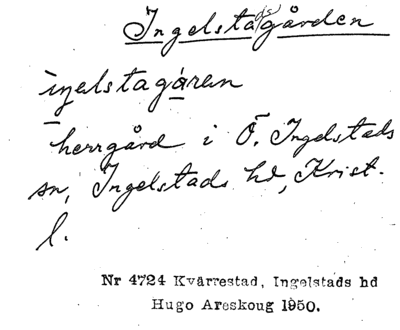 Ingelstadsgården
iŋəlstagáren
herrgård i Ö. Ingelstads
sn, Ingelstads hd, Krist.
l.
Nr 4724 Kvärrestad, Ingelstads hd
Hugo Areskoug 1950.